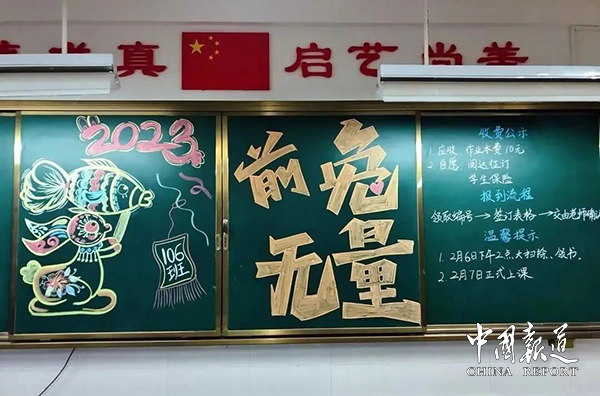 真 启艺尚善
2023
106
班
前兔
无量
收费公示
1. 应收 作业本费10元
2. 自愿 阅达征订
学生保险
报到流程
领取编号→签订表格→交由老师确认
温馨提示
1. 2月6日下午2点大扫除、领书.
2. 2月7日正式上课
中国报道
CHINA REPORT